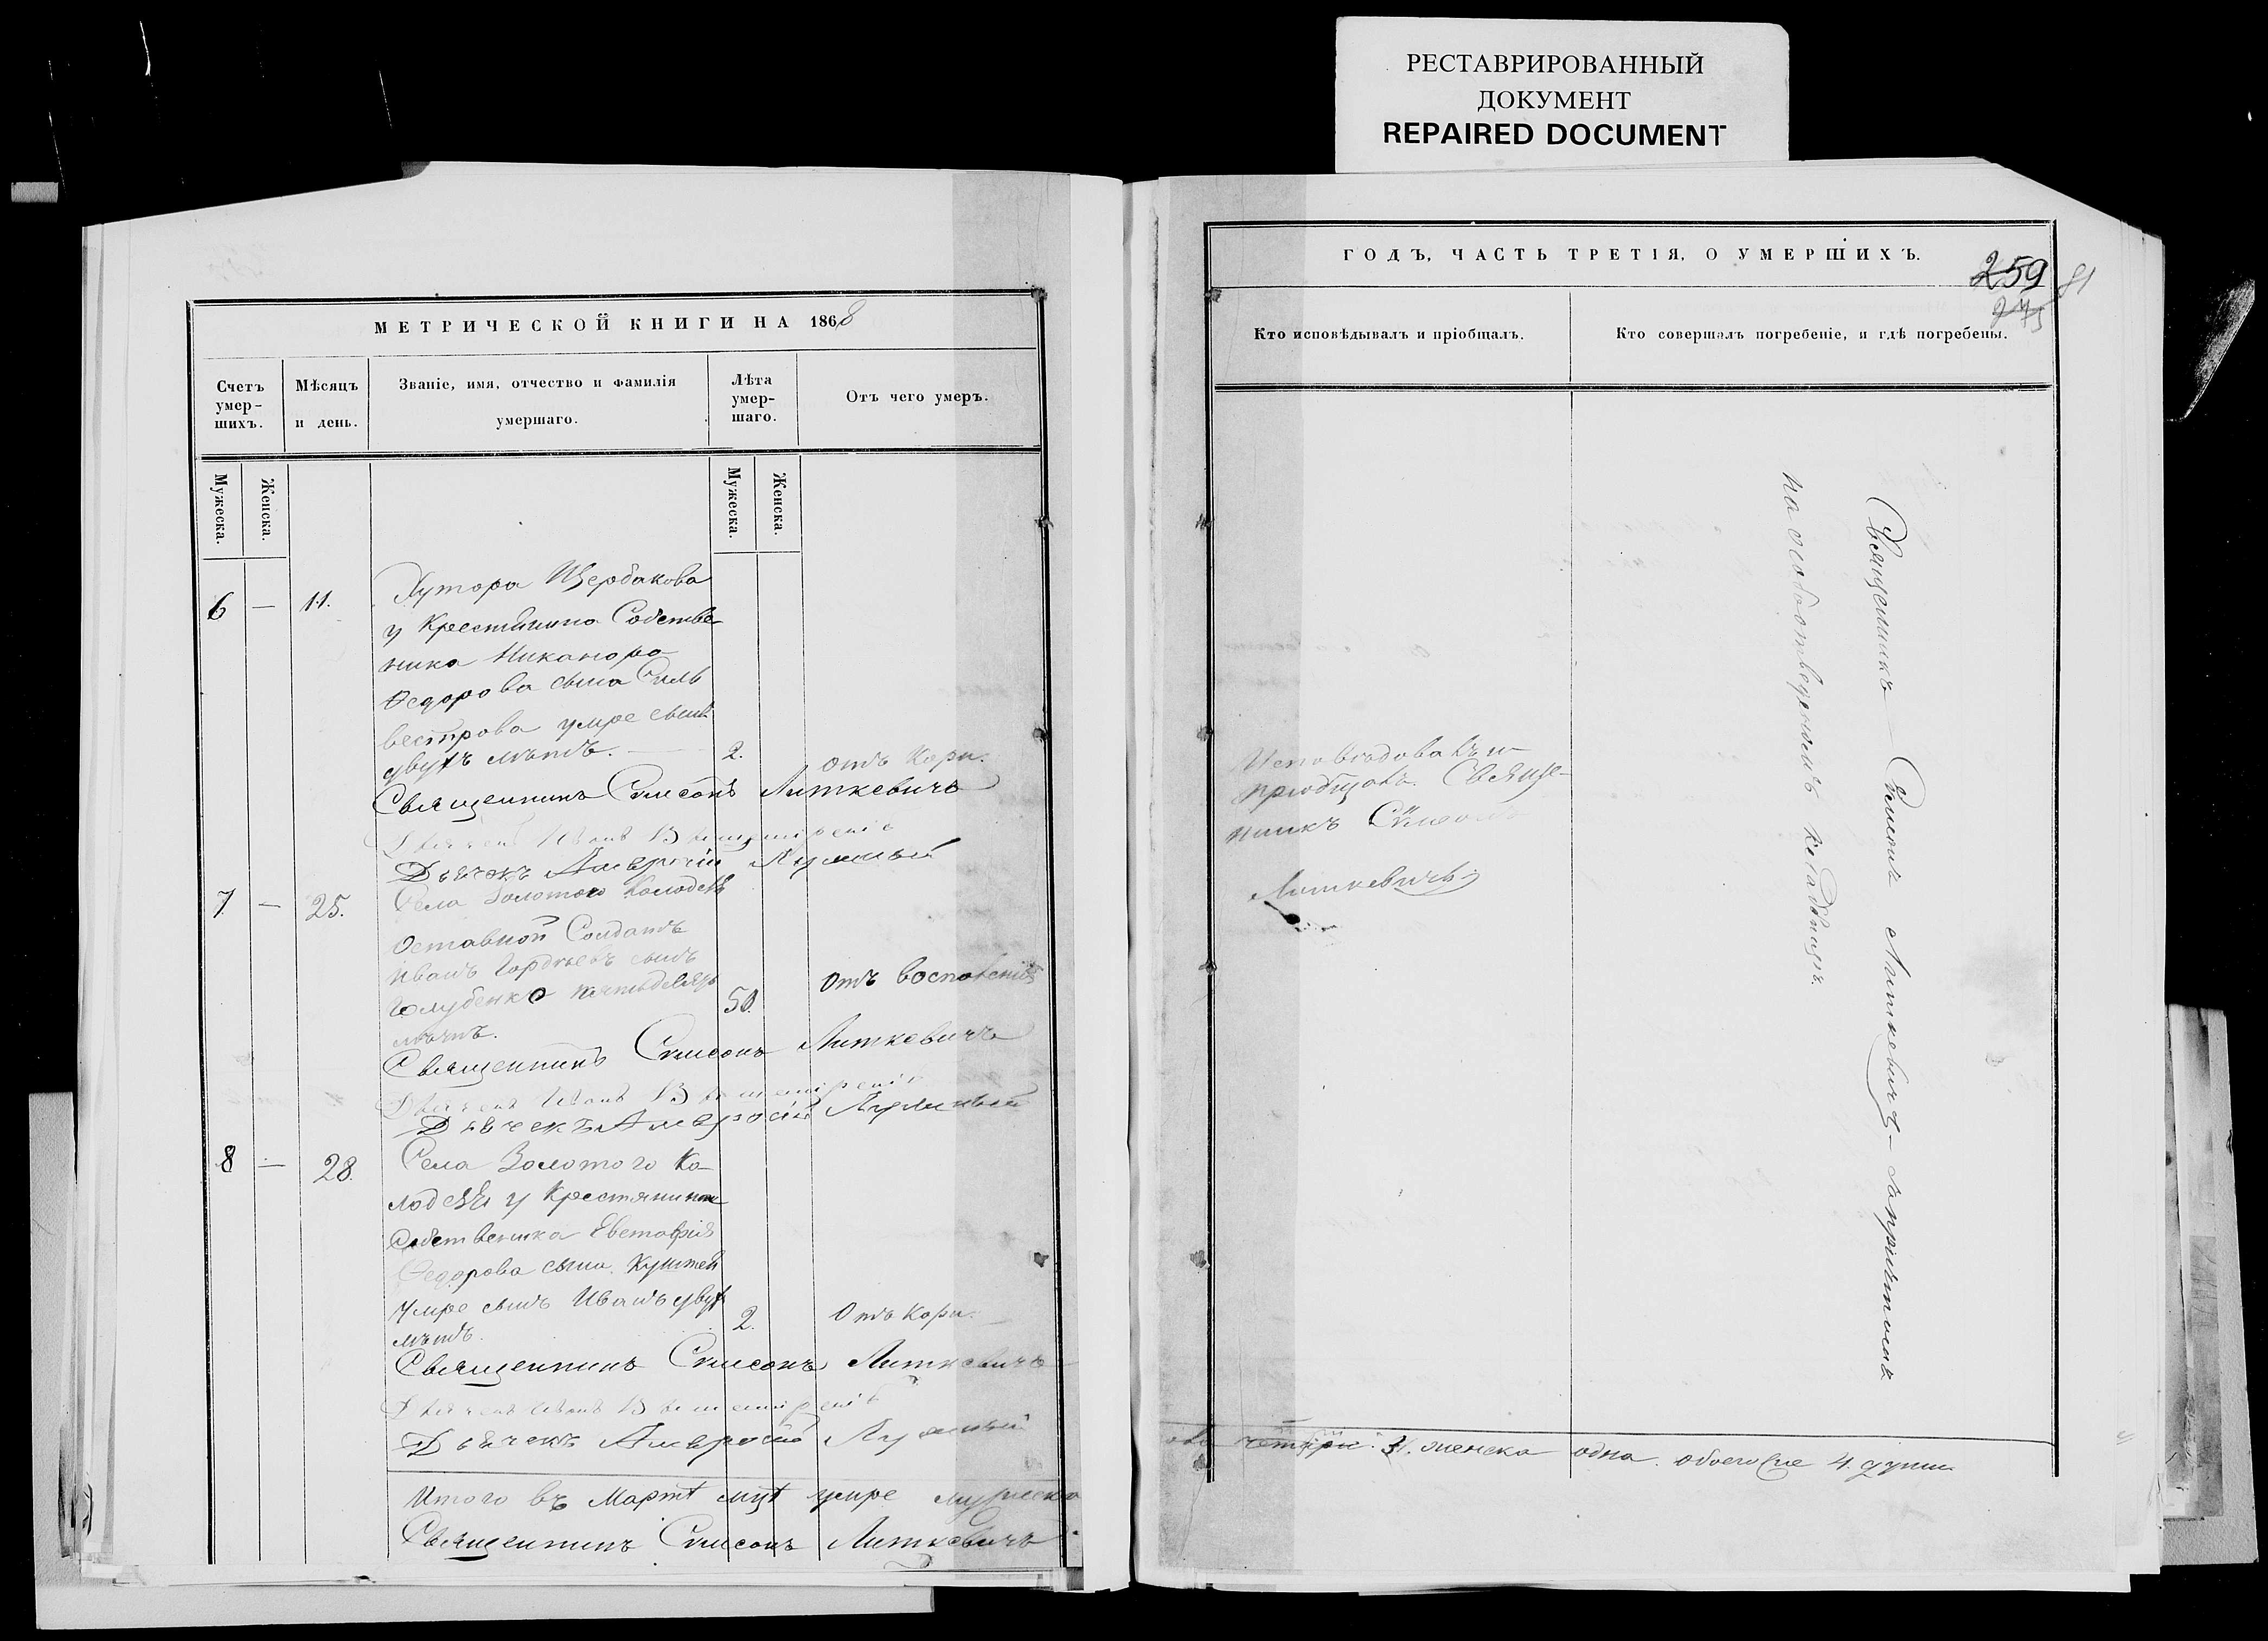 РЕСТАВРИРОВАННЫЙ
ДОКУМЕНТ
REPAIRED DOCUMENT
МЕТРИЧЕСКОЙ КНИГИ НА 1868
Счетъ умер-шихъ.
Мѣсяцъ и день.
Званіе, имя, отчество и фамилія умершаго.
Лѣта умер-шаго.
Отъ чего умеръ.
Мужеска.
Женска.
Мужеска.
Женска.
6 — 11. Хутора Щербакова
у Крестянина Собстве
ника Никанора
Федорова сына Силь
вестрова умре сынъ
двухъ лѣтъ. — 2. отъ Кори.
Священникъ Симеонъ Литкевичъ
Иванъ
Дьячекъ Амвросій
7 — 25. Села Золотого Колодезя
Отставной Солдатъ
Иванъ Гордѣевъ сынъ
Голубенко пятьдесяти 50. отъ воспаленія
лѣтъ.
Священникъ Симеонъ Литкевичъ
Иванъ
Дьячекъ Амвросій
8 — 28. Села Золотого Ко
лодезя у Крестянина
Собственика Евстафія
Федорова сына
Умре сынъ Иванъ двух 2. Отъ Кори.
лѣтъ.
Священникъ Симеонъ Литкевичъ
Иванъ
Дьячекъ Амвросій
Итого въ Мартѣ мцѣ умре мужеска
Священникъ Симеонъ Литкевичъ
ГОДЪ, ЧАСТЬ ТРЕТІЯ, О УМЕРШИХЪ.
259 81
275
Кто исповѣдывалъ и пріобщалъ.
Кто совершалъ погребеніе, и гдѣ погребены.
Исповѣдовалъ и
пріобщалъ Свяще-
никъ Сѵмеонъ
Литкевичъ
Священникъ Симеонъ Литкевичъ с причтомъ
на особоотведенномъ кладбищѣ.
четыри женска одна. обоего 4. души